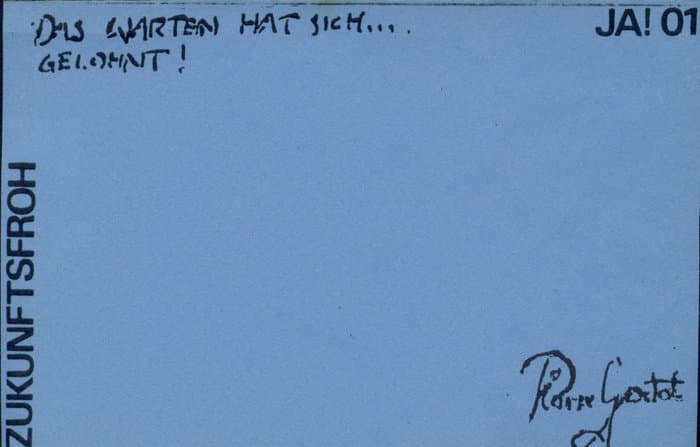 DAS WARTEN HAT SICH....
GELOHNT!
JA! 01
ZUKUNFTSFROH